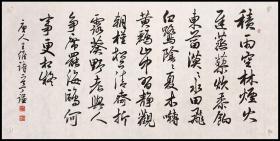 積雨空林煙火
遲蒸藜炊黍餉
東菑漠〻水田飛
白鷺陰〻夏木囀
黃鸝山中習靜觀
朝槿松下清齋折
露葵野老與人
爭席罷海鷗何
事更相疑
唐人王維詩